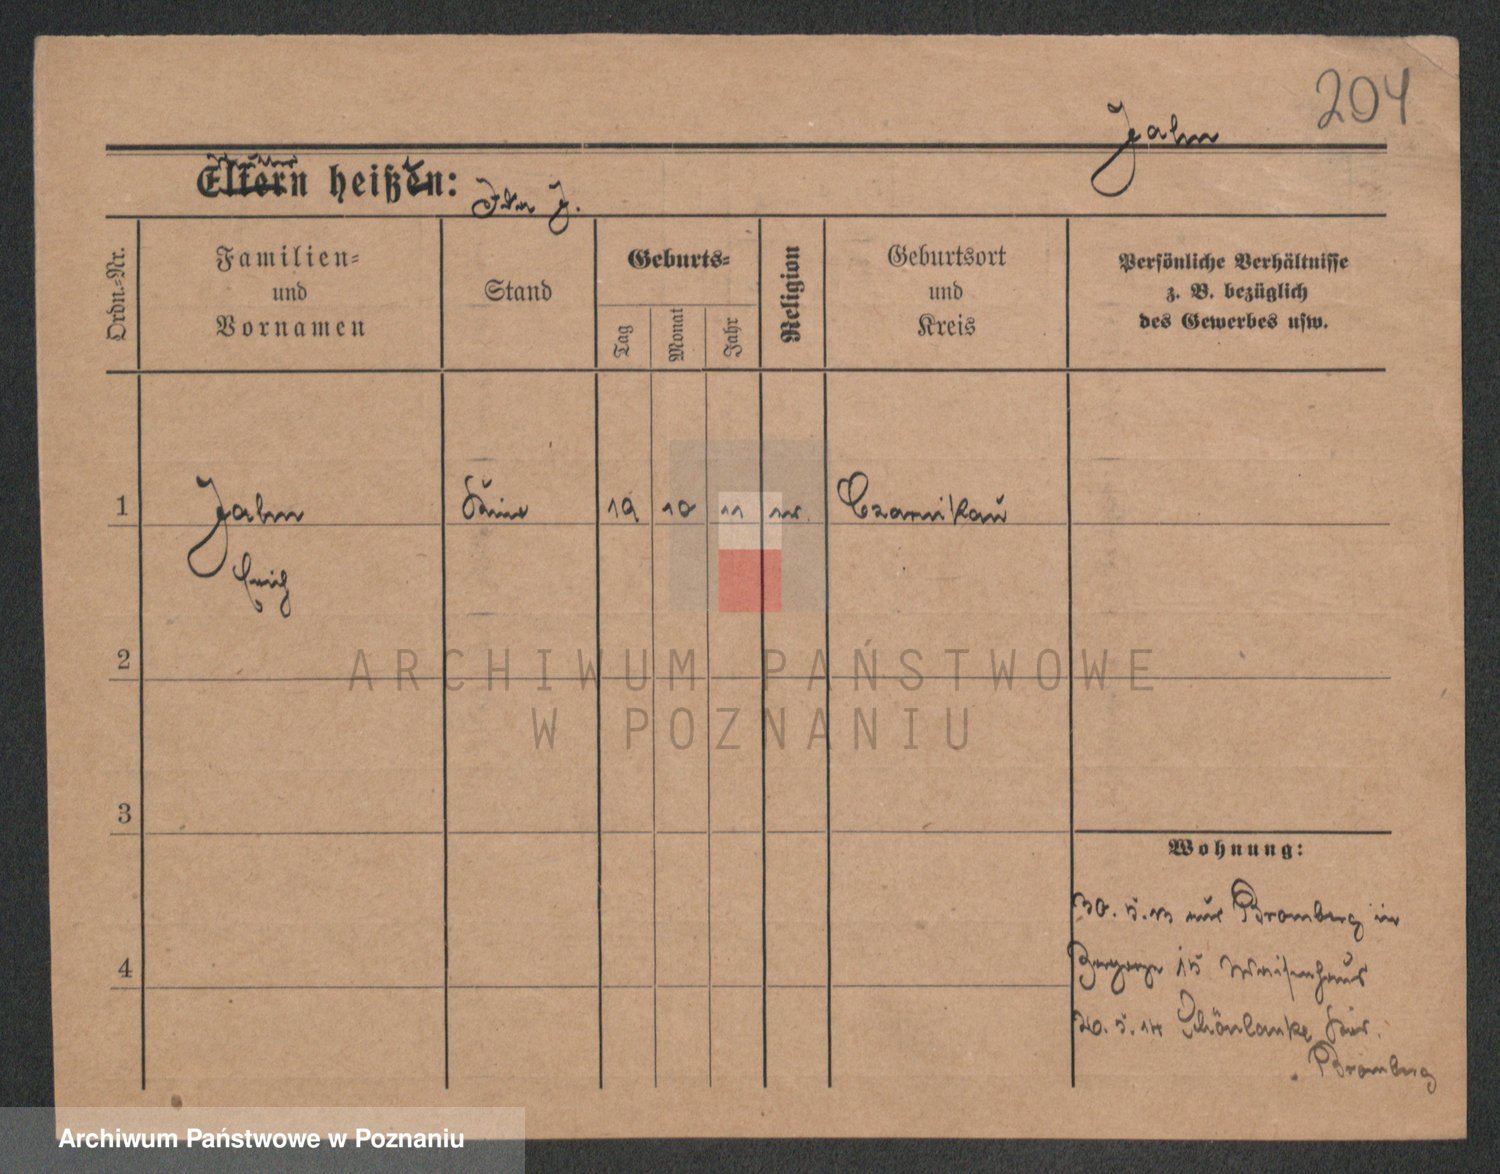 204
Jahn
Eltern heißen:
Ida J.
Ordn.-Nr.
Familien-
und
Vornamen
Stand
Geburts-
Tag
Monat
Jahr
Religion
Geburtsort
und
Kreis
Persönliche Verhältnisse
z. B. bezüglich
des Gewerbes usw.
1
Jahn
19 10 11
Czarnikau
Erich
2
ARCHIWUM PAŃSTWOWE
W POZNANIU
3
Wohnung:
30. 5. 13 aus Bromberg in
4
15 Waisenhaus
20. 5. 14 Schönlanke
Bromberg
Archiwum Państwowe w Poznaniu